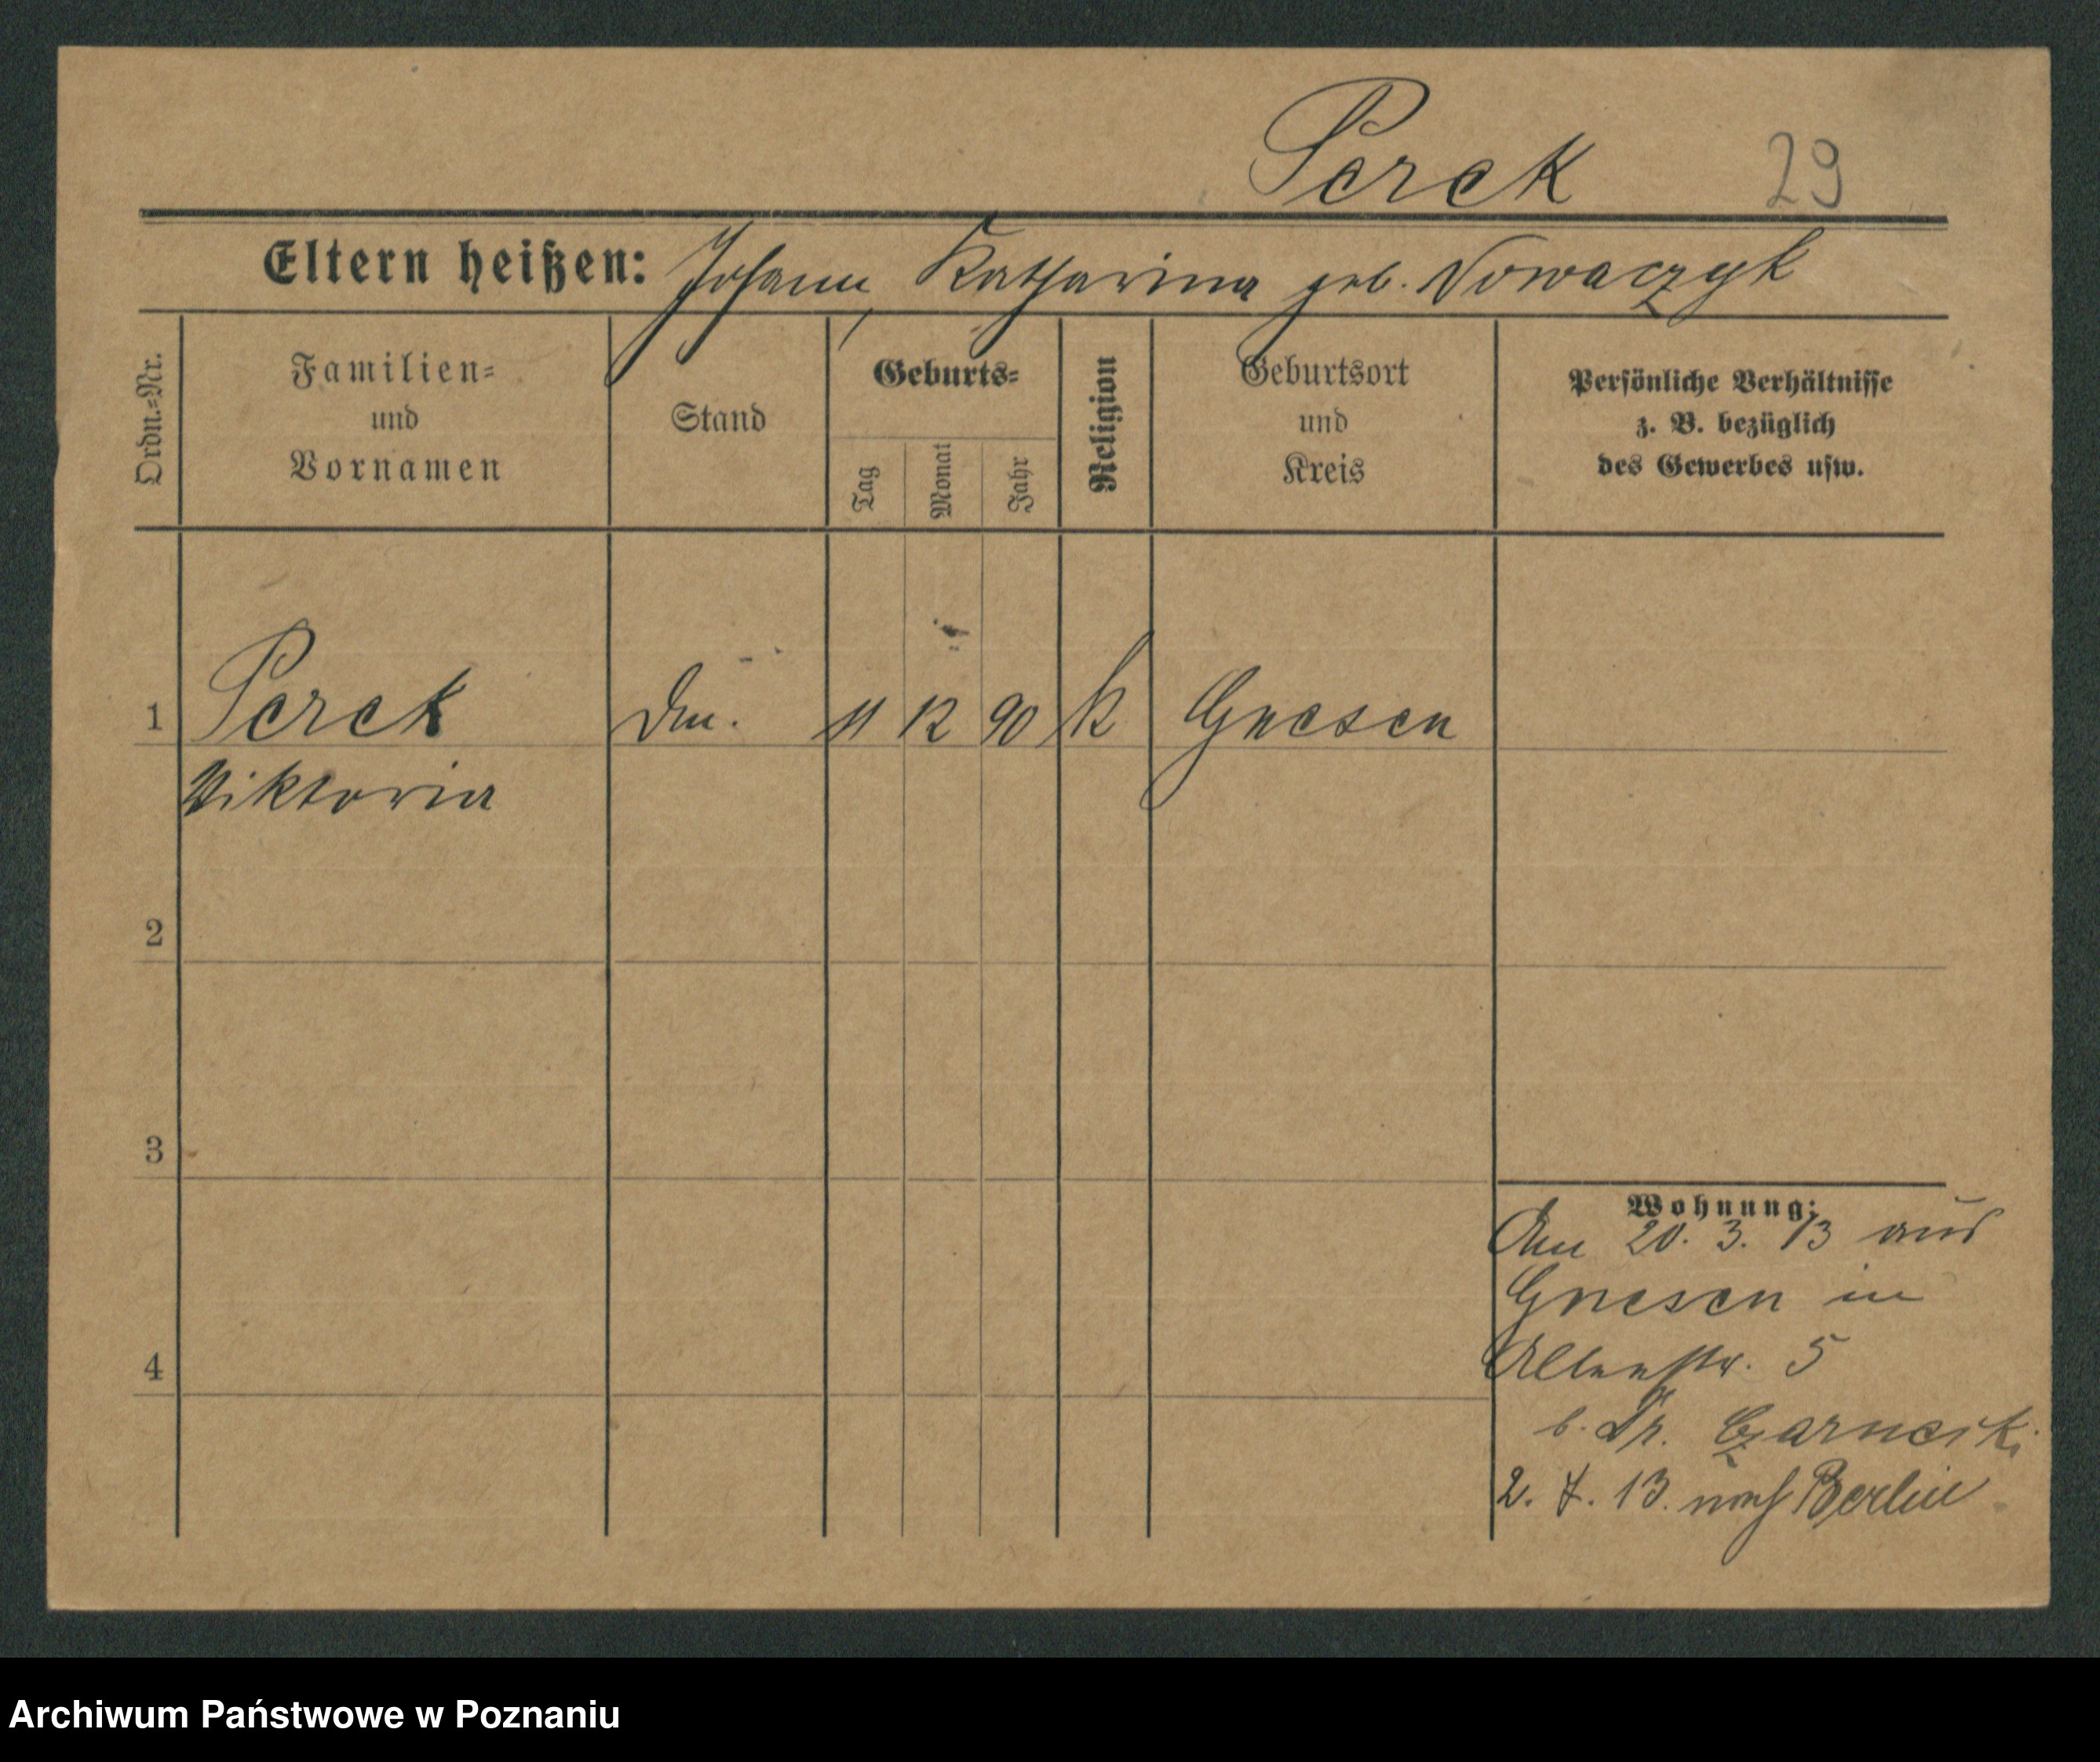 Perek 29
Eltern heißen: Johann, Katharina geb. Nowaczyk
Ordn.=Nr.
Familien=
und
Vornamen
Stand
Geburts=
Tag
Monat
Jahr
Religion
Geburtsort
und
Kreis
Persönliche Verhältnisse
z. B. bezüglich
des Gewerbes usw.
1 Perek 11 12 90 k Gnesen
Viktoria
2
3
4
Wohnung:
Am 20. 3. 13 aus
Gnesen in
5
b. Dr.
2. 7. 13. nach Berlin
Archiwum Państwowe w Poznaniu